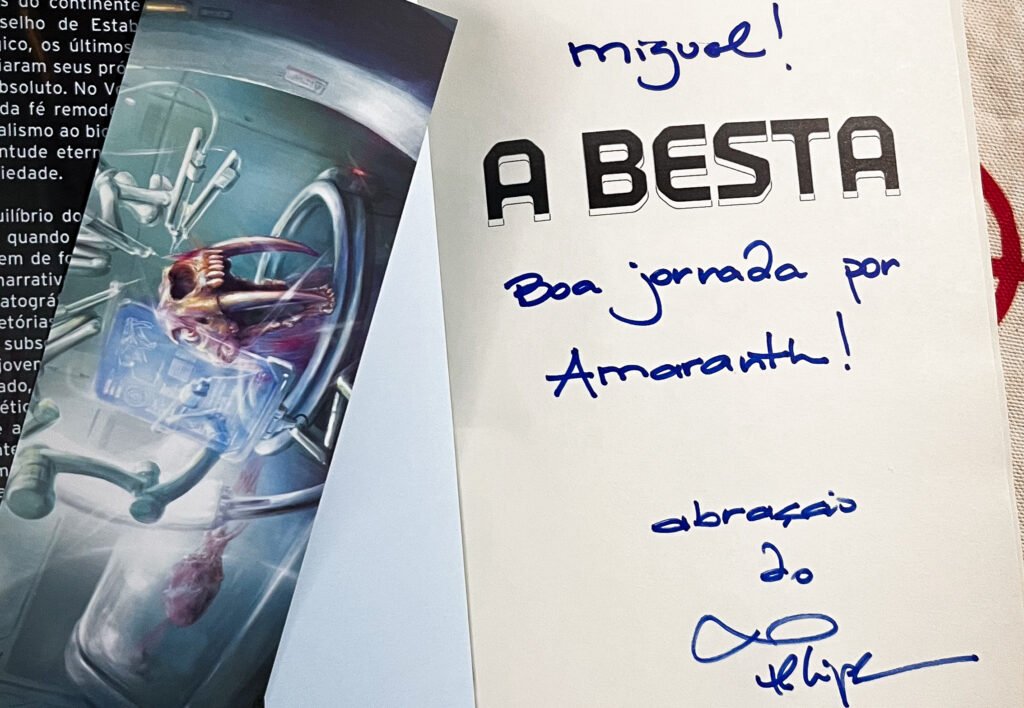 s do continente
selho de Estab
gico, os últimos
iaram seus pró
bsoluto. No V
da fé remode
alismo ao bio
ntude etern
iedade.
uilíbrio do
quando
em de fo
narrativ
atográ
etórias
subs
joven
ado,
étic
e a
miguel!
A BESTA
Boa jornada por
Amaranth!
abração
do
Felipe